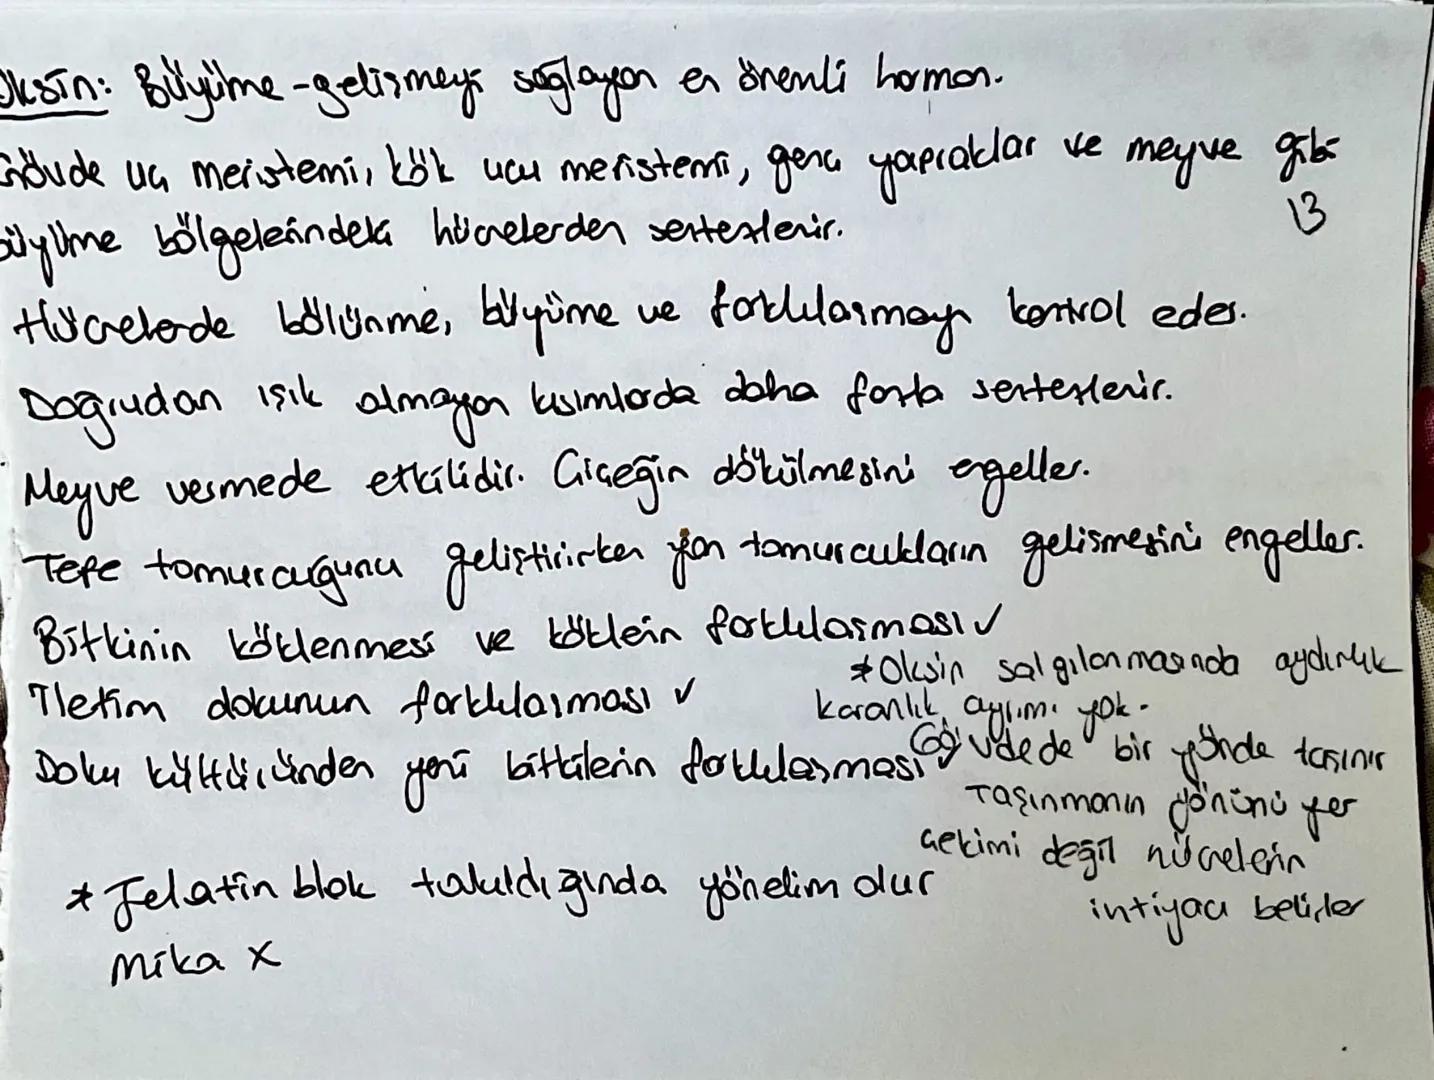 Oksin: Büyüme-gelişmeyi sağlayan en önemli hormon.
Gövde uç meristemi, kök ucu meristemi, genç yapraklar ve meyve gibi
13
büyüme bölgelerindeki hücrelerden sentezlenir.
Hücrelerde bölünme, büyüme ve farklılaşmayı kontrol eder.
Doğrudan ışık almayan kısımlarda daha fazla sentezlenir.
Meyve vermede etkilidir. Çiçeğin dökülmesini engeller.
Tepe tomurcuğunu geliştirirken yan tomurcukların gelişmesini engeller.
Bitkinin köklenmesi ve köklerin farklılaşması ✓
İletim dokunun farklılaşması ✓
Doku kültüründen yeni bitkilerin farklılaşması ✓
* Oksin salgılanmasında aydınlık
karanlık ayrımı yok.
Gövdede bir yönde taşınır
Taşınmanın yönünü yer
çekimi değil hücrelerin
ihtiyacı belirler
* Jelatin blok takıldığında yönelim olur
mika X